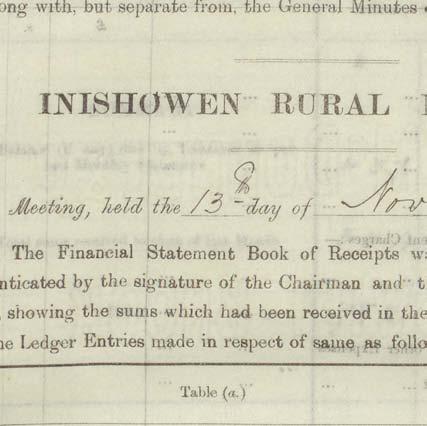 ong with, but separate from, the General Minutes
INISHOWEN RURAL
Meeting, held the 13th day of Nov
The Financial Statement Book of Receipts wa
nticated by the signature of the Chairman and t
, showing the sums which had been received in the
ne Ledger Entries made in respect of same as follo
Table (a.)